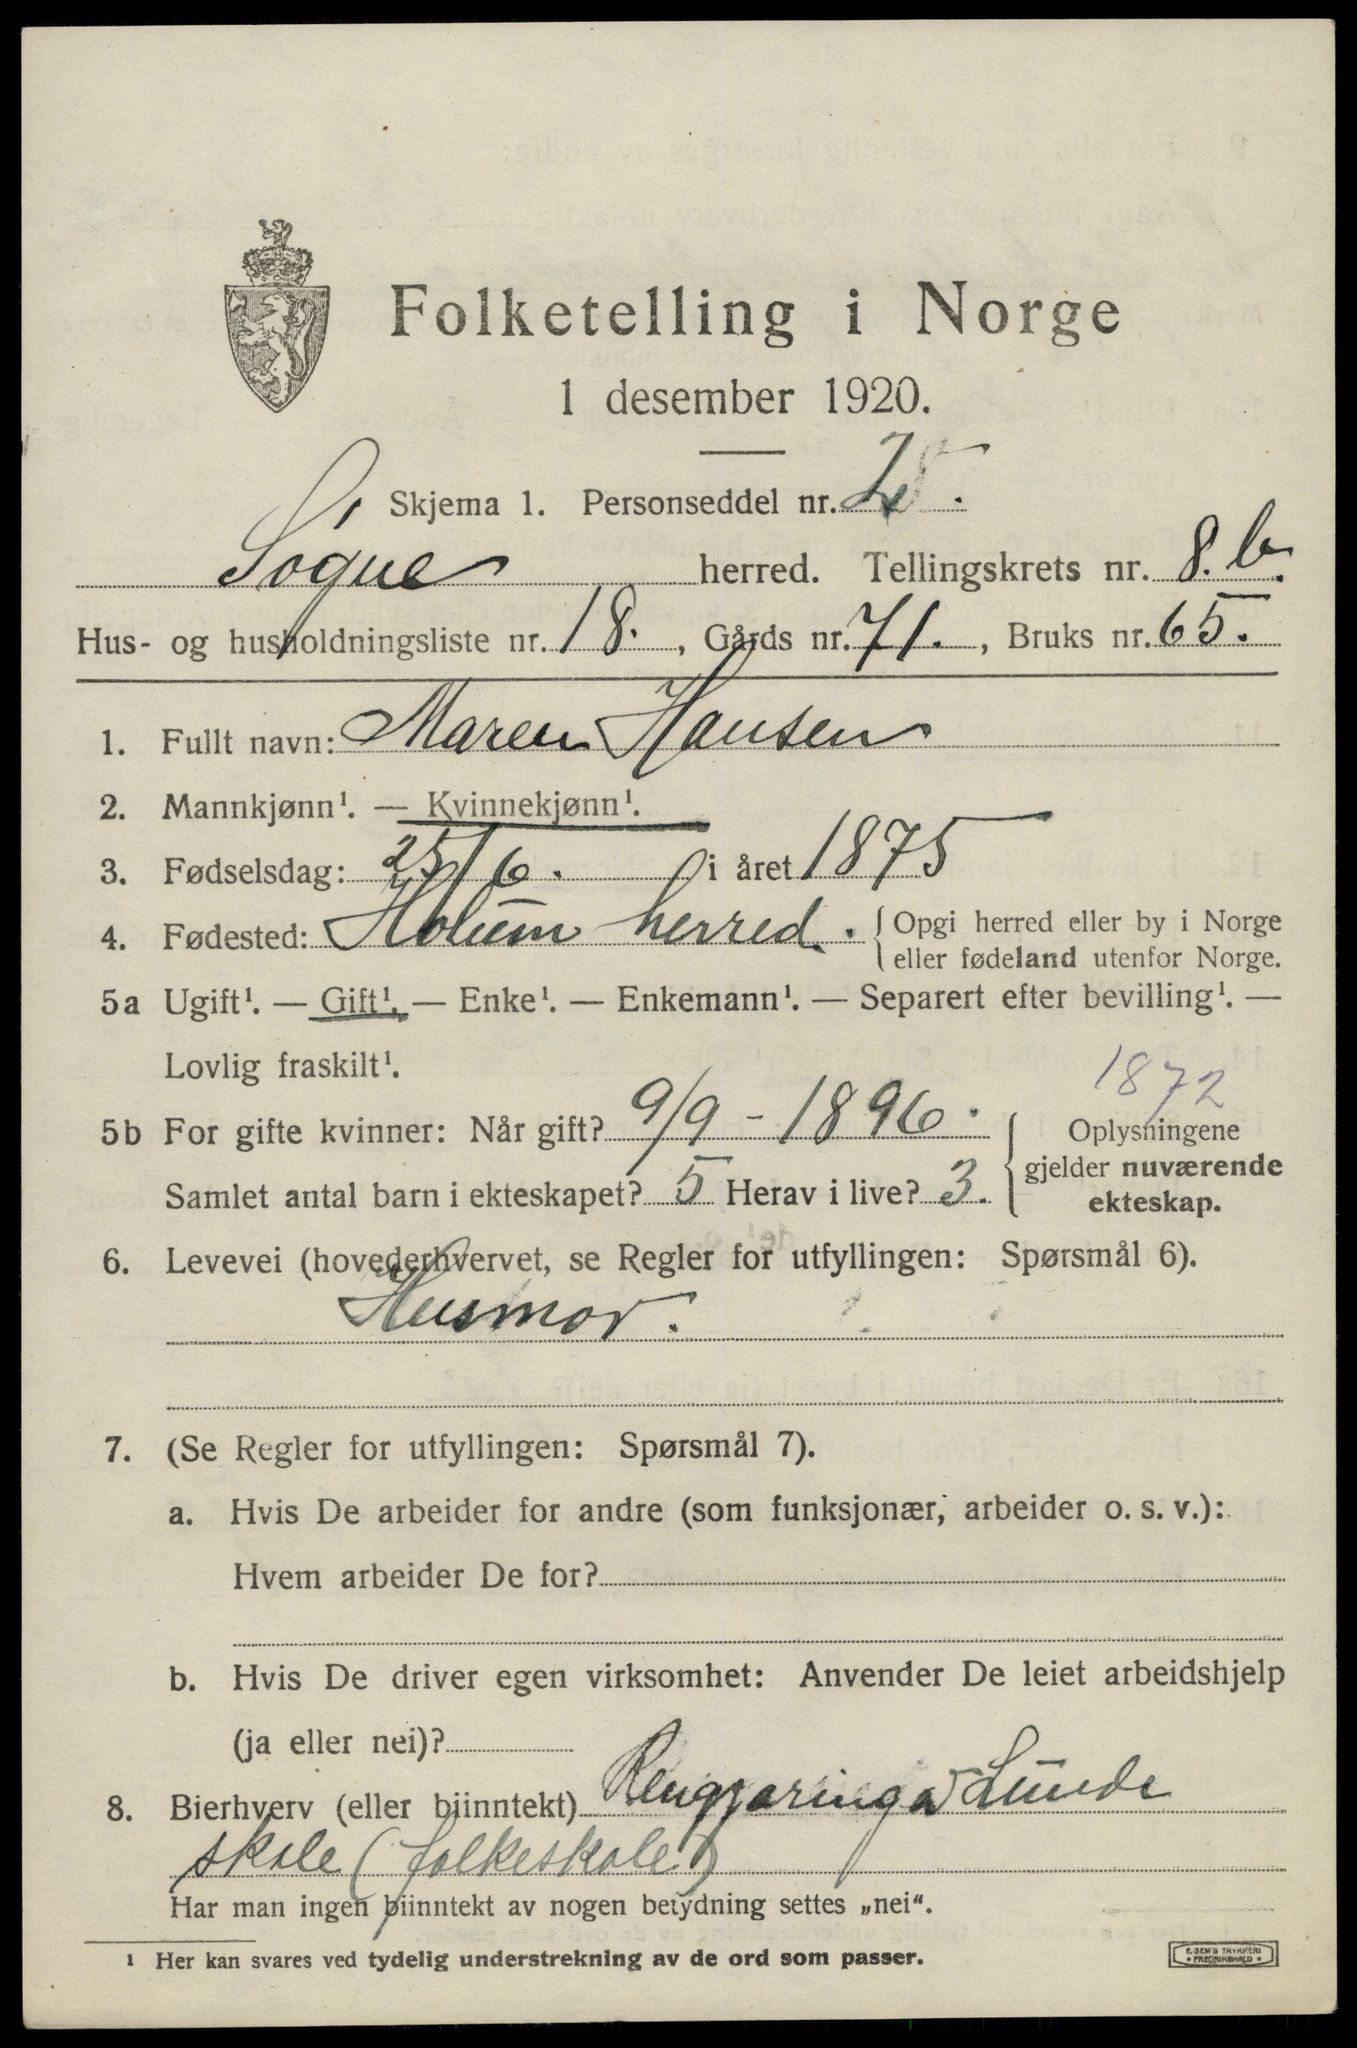 Folketelling i Norge
1 desember 1920.
Skjema 1. Personseddel nr. 2.
Søgne herred. Tellingskrets nr. 8.b.
Hus- og husholdningsliste nr. 18., Gårds nr. 71., Bruks nr. 65.
1. Fullt navn: Maren Hansen
2. Mannkjønn¹. — Kvinnekjønn¹.
3. Fødselsdag: 25/6. i året 1875
4. Fødested: Holum herred. {Opgi herred eller by i Norge
eller fødeland utenfor Norge.
5a Ugift¹. — Gift¹. — Enke¹. — Enkemann¹. — Separert efter bevilling¹. —
Lovlig fraskilt¹.
1872
5b For gifte kvinner: Når gift? 9/9 - 1896. { Oplysningene
gjelder nuværende
Samlet antal barn i ekteskapet? 5 Herav i live? 3. ekteskap.
6. Levevei (hovederhvervet, se Regler for utfyllingen: Spørsmål 6).
Husmor.
7. (Se Regler for utfyllingen: Spørsmål 7).
a. Hvis De arbeider for andre (som funksjonær, arbeider o. s. v.):
Hvem arbeider De for?
b. Hvis De driver egen virksomhet: Anvender De leiet arbeidshjelp
(ja eller nei)?
8. Bierhverv (eller biinntekt) Rengjøring av Lunde
skole (folkeskole)
Har man ingen biinntekt av nogen betydning settes „nei“.
¹ Her kan svares ved tydelig understrekning av de ord som passer.
E. SEM'S TRYKKERI
• FREDRIKSHALD •